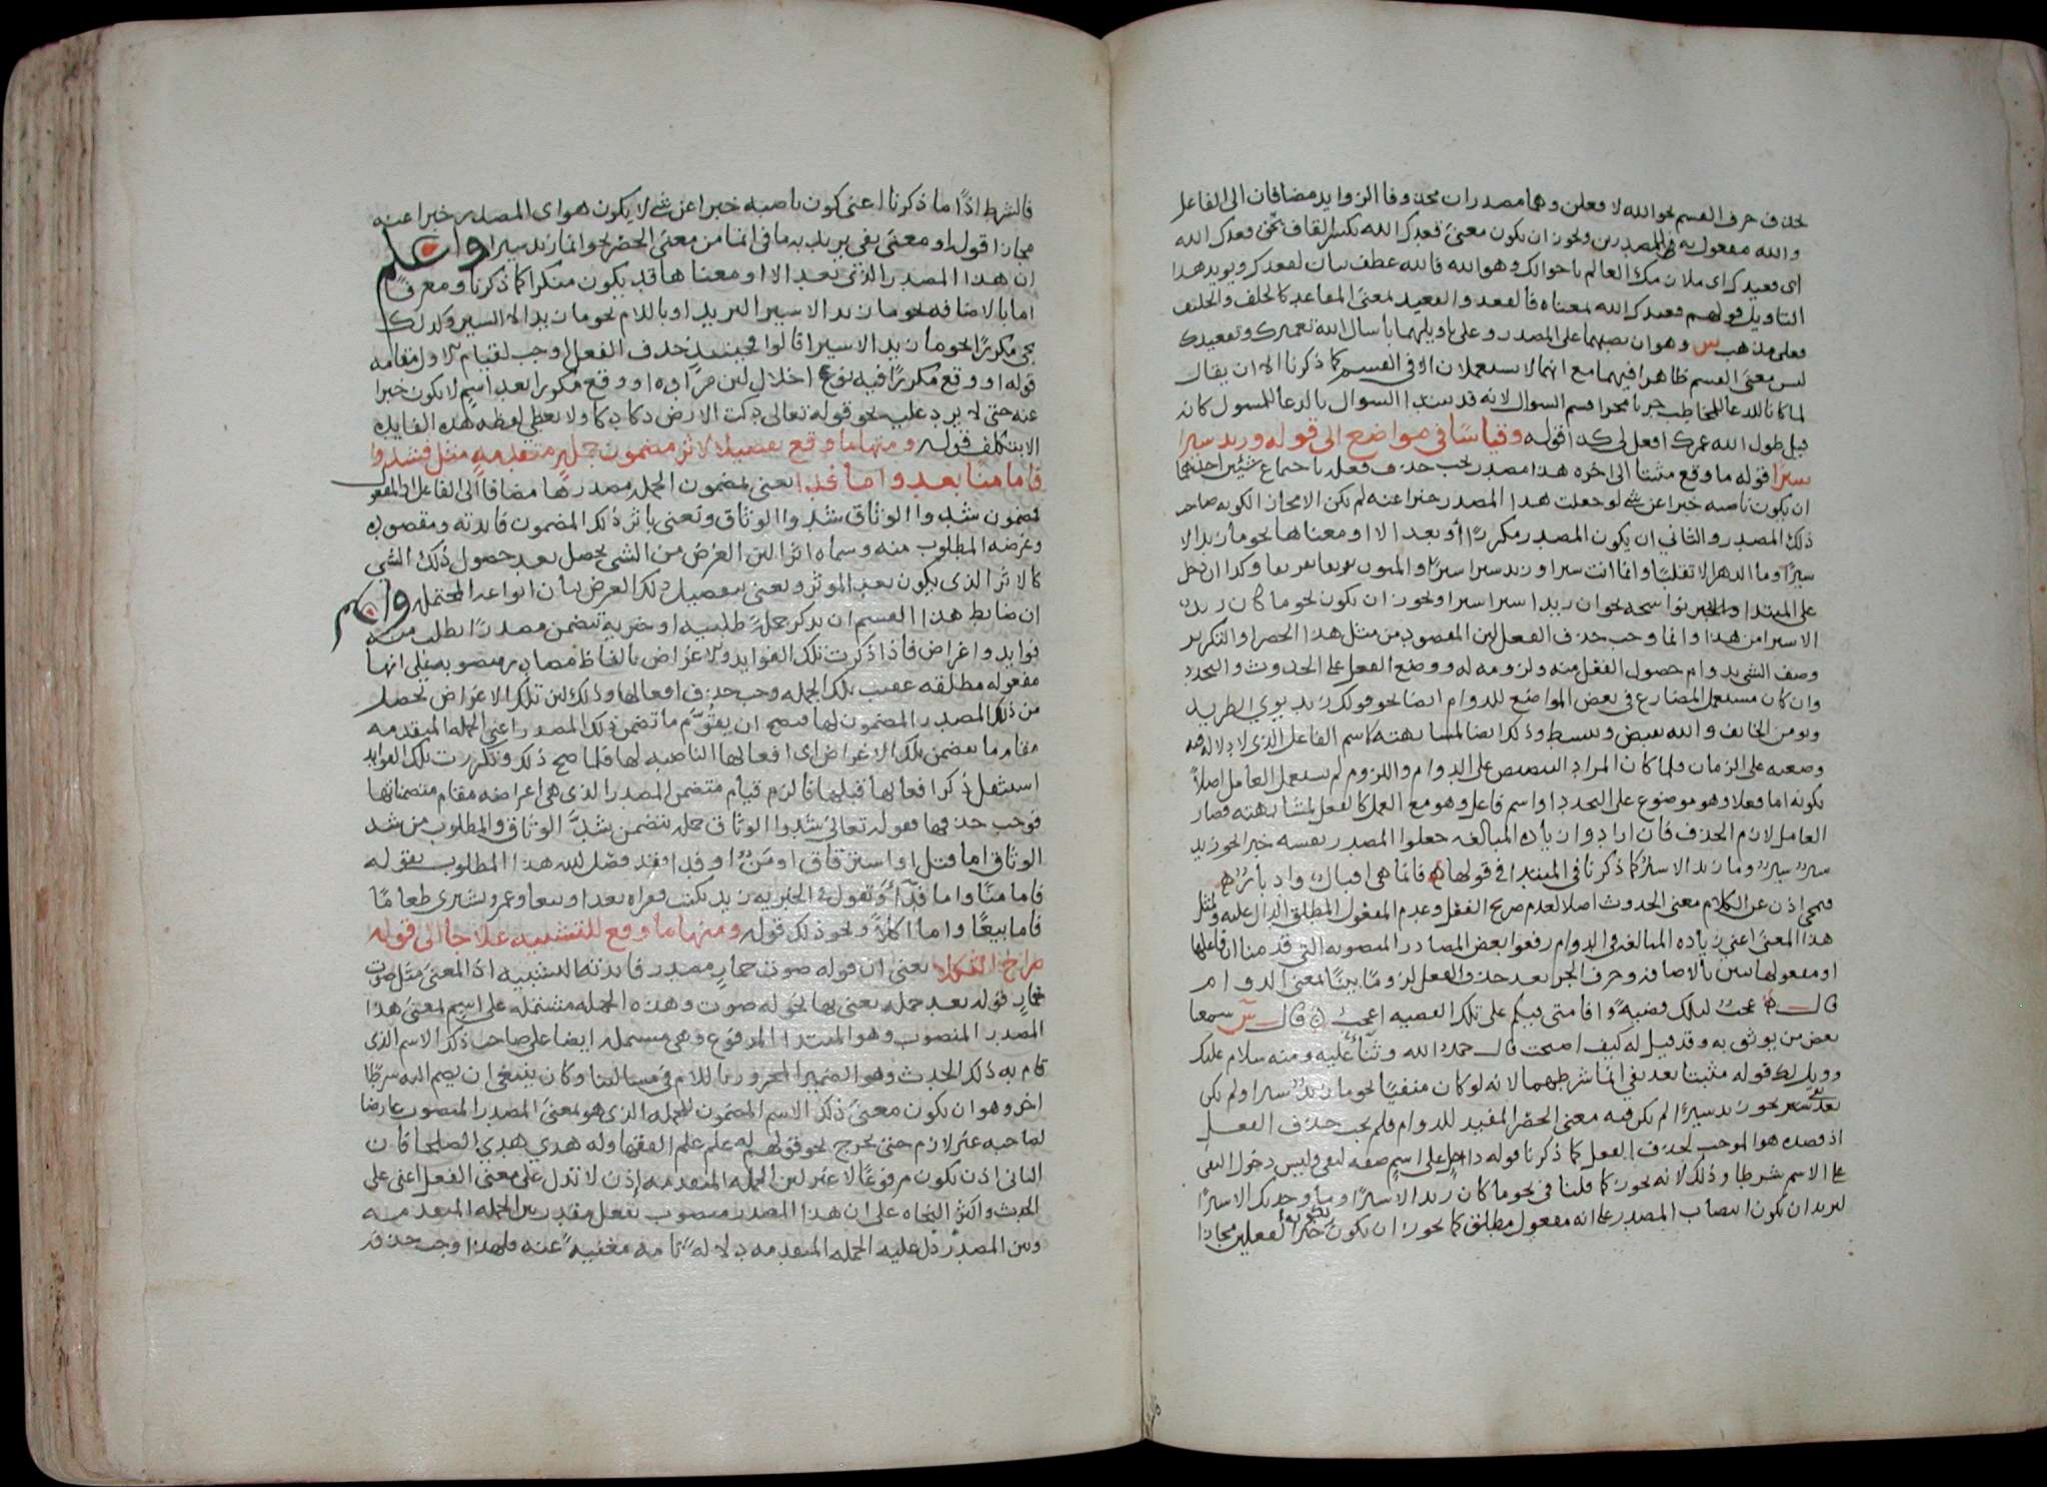 بحذف حرف القسم نحو الله لافعلن وهما مصدران محذوفا الزوايد مضافان الى الفاعل
والله مفعول به للمصدرين ويجوز ان يكون معنى قعدك الله بكسر القاف
اى قعيدك اى ملازمك العالم باحوالك وهو الله فالله عطف بيان لقعدك ويويد هذا
التاويل قولهم قعيدك الله بمعناه فالقعد والقعيد بمعنى المقاعد كالحلف والحليف
فعلى مذهب س وهو ان نصبهما على المصدر وعلى تاويلهما باسال الله تعميرك وتقعيدك
ليس معنى القسم ظاهرا فيهما مع انهما لا يستعملان الا فى القسم كما ذكرنا الا ان يقال
لما كانا للدعا للمخاطب جريا مجرا قسم السوال لانه قد يبتدا السوال بالدعا للمسول كانه
قيل طول الله عمرك افعل لى كذا قوله وقياسا فى مواضع الى قوله وزيد سيرا
سيرا قوله ما وقع مثبتا الى اخره هذا مصدر يجب حذف فعله باجتماع شيئين احدهما
ان يكون ناصبه خبرا عن شى لو جعلت هذا المصدر خبرا عنه لم يكن الا مجازا لكونه صاحب
ذلك المصدر والثانى ان يكون المصدر مكررا او بعد الا او معناها نحو ما زيد الا
سيرا وما الدهر الا تقلبا وانما انت سيرا وزيد سيرا سيرا وكذا ان دخل
على المبتدا والخبر نواسخه نحو ان زيدا سيرا سيرا ويجوز ان يكون نحو ما كان زيد
الا سيرا من هذا وانما وجب حذف الفعل لان المقصود من مثل هذا الحصر او التكرير
وصف الشى بدوام حصول الفعل منه ولزومه له ووضع الفعل على الحدوث والتجدد
وان كان يستعمل المضارع فى بعض المواضع للدوام ايضا نحو قولك زيد يووى الطريد
ويومن الخايف والله يقبض ويبسط وذلك ايضا لمشابهته لاسم الفاعل الذى لا دلالة فيه
وضعه على الزمان فلما كان المراد التنصيص على الدوام واللزوم لم يستعمل العامل اصلا
لكونه اما فعلا وهو موضوع على التجدد او اسم فاعل وهو مع العمل كالفعل لمشابهته فصار
العامل لازم الحذف فان ارادوا زيادة المبالغه جعلوا المصدر نفسه خبرا نحو زيد
سير سير وما زيد الا سير كما ذكرنا فى المبتدا فى قولها فانما هى اقبال وادبار
فيمحى اذن عن الكلام معنى الحدوث اصلا لعدم صريح الفعل وعدم المفعول المطلق الدال عليه ولمثل
هذا المعنى اعنى زياده المبالغه فى الدوام رفعوا بعض المصادر المنصوبه التى قدمنا ان فاعلها
او مفعولها يبين بالاضافه وحرف الجر بعد حذف الفعل لزوما بيتا لمعنى الدوام
قال عجب لتلك قضية واقامتى فيكم على تلك القضيه اعجب قال س سمعنا
بعض من يوثق به وقد قيل له كيف اصبحت قال حمد الله وثناء عليه ومنه سلام عليك
وويل لك قوله مثبتا بعد نفى انما شرطهما لانه لو كان منفيا نحو ما زيد سيرا ولم يكن
بعد نفى نحو زيد سيرا لم يكن فيه معنى الحصر المفيد للدوام فلم يجب حذف الفعل
اذ قصده هو الموجب لحذف الفعل كما ذكرنا قوله داخل على اسم صفه لنفى وليس دخول النفى
على الاسم شرطا وذلك لانه يجوز كما قلنا فى نحو ما كان زيد الا سيرا وما وجدتك الا سيرا
لزيد ان يكون انتصاب المصدر على انه مفعول مطلق كما يجوز ان يكون خبرا لفعلين مجازا
فالشرط اذا ما ذكرنا اعنى كون ناصبه خبرا عن شى لا يكون هو اى المصدر خبرا عنه
مجازا قوله او معنى نفى يريد به ما فى انما من معنى الحصر نحو انما زيد سيرا واعلم
ان هذا المصدر الذى بعد الا او معناها قد يكون منكرا كما ذكرنا ومعرفا
اما بالاضافه نحو ما زيد الا سير البريد او باللام نحو ما زيد الا السير وكذلك
يجى مكررا نحو ما زيد الا سيرا قالوا فحينئذ حذف الفعل اوجب لقيام الاول مقامه
قوله او وقع مكررا فيه نوع اخلال لان مراده او وقع مكررا بعد اسم لا يكون خبرا
عنه حتى لا يرد عليه نحو قوله تعالى دكت الارض دكا دكا ولا يعطى لفظه هذه الفايده
الا بتكلف قوله ومنها ما وقع تفصيلا لاثر مضمون جملة متقدمة مثل فشدوا
فاما منا بعد واما فداء يعنى بمضمون الجمله مصدرها مضافا الى الفاعل او المفعول
فمضمون شدوا الوثاق شد الوثاق ويعنى باثر ذلك المضمون فايدته ومقصوده
وغرضه المطلوب منه وسماه اثرا لان الغرض من الشى يحصل بعد حصول ذلك الشى
كالاثر الذى يكون بعد الموثر ويعنى بتفصيل ذلك الغرض بيان انواعه المحتمله واعلم
ان ضابط هذا القسم ان يذكر جملة طلبيه او خبرية تتضمن مصدرا يطلب منه
فوايد واغراض فاذا ذكرت تلك الفوايد والاغراض بالفاظ مصادر منصوبه على انها
مفعوله مطلقه عقيب تلك الجمله وجب حذف افعالها وذلك لان تلك الاغراض تحصل
من ذلك المصدر المضمون لها فصح ان يقوم ما تضمن ذلك المصدر اعنى الجمله المتقدمه
مقام ما يتضمن تلك الاغراض اى افعالها الناصبه لها فلما صح ذلك وتكررت تلك الفوايد
استثقل ذكر افعالها قبلها فالزم قيام متضمن المصدر الذى هى اغراضه مقام متضمناتها
فوجب حذفها فقوله تعالى شدوا الوثاق جمله تتضمن شد الوثاق والمطلوب من شد
الوثاق اما قتل او استرقاق او من او فدا ففصل الله هذا المطلوب بقوله
فاما منا واما فداء وتقول فى الخبريه زيد يكتب فقراة بعد او بيعا وعمرو يشترى طعاما
فاما بيعا واما اكلا ونحو ذلك قوله ومنها ما وقع للتشبيه علاجا الى قوله
صراخ الثكلى يعنى ان قوله صوت حمار مصدر فايدته التشبيه اذ المعنى مثل صوت
حمار قوله بعد جمله يعنى بها نحو له صوت وهذه الجمله مشتمله على اسم بمعنى هذا
المصدر المنصوب وهو المبتدا المرفوع وهى مشتمله ايضا على صاحب ذلك الاسم الذى
قام به ذلك الحدث وهو الضمير المجرور باللام فى مسالتنا وكان ينبغى ان يضم اليه شرطا
اخر وهو ان يكون معنى ذلك الاسم المضمون للجمله الذى هو بمعنى المصدر المنصوب عارضا
لصاحبه غير لازم حتى يخرج نحو قولهم له علم علم الفقها وله هدى هدى الصلحا فان
الثانى اذن يكون مرفوعا لا غير لان الجمله المتقدمه اذن لا تدل على معنى الفعل اعنى على
الحدث واكثر النحاه على ان هذا المصدر منصوب بفعل مقدر بين الجمله المتقدمه
وبين المصدر دل عليه الجمله المتقدمه دلالة تامه مغنية عنه فلهذا وجب حذفه